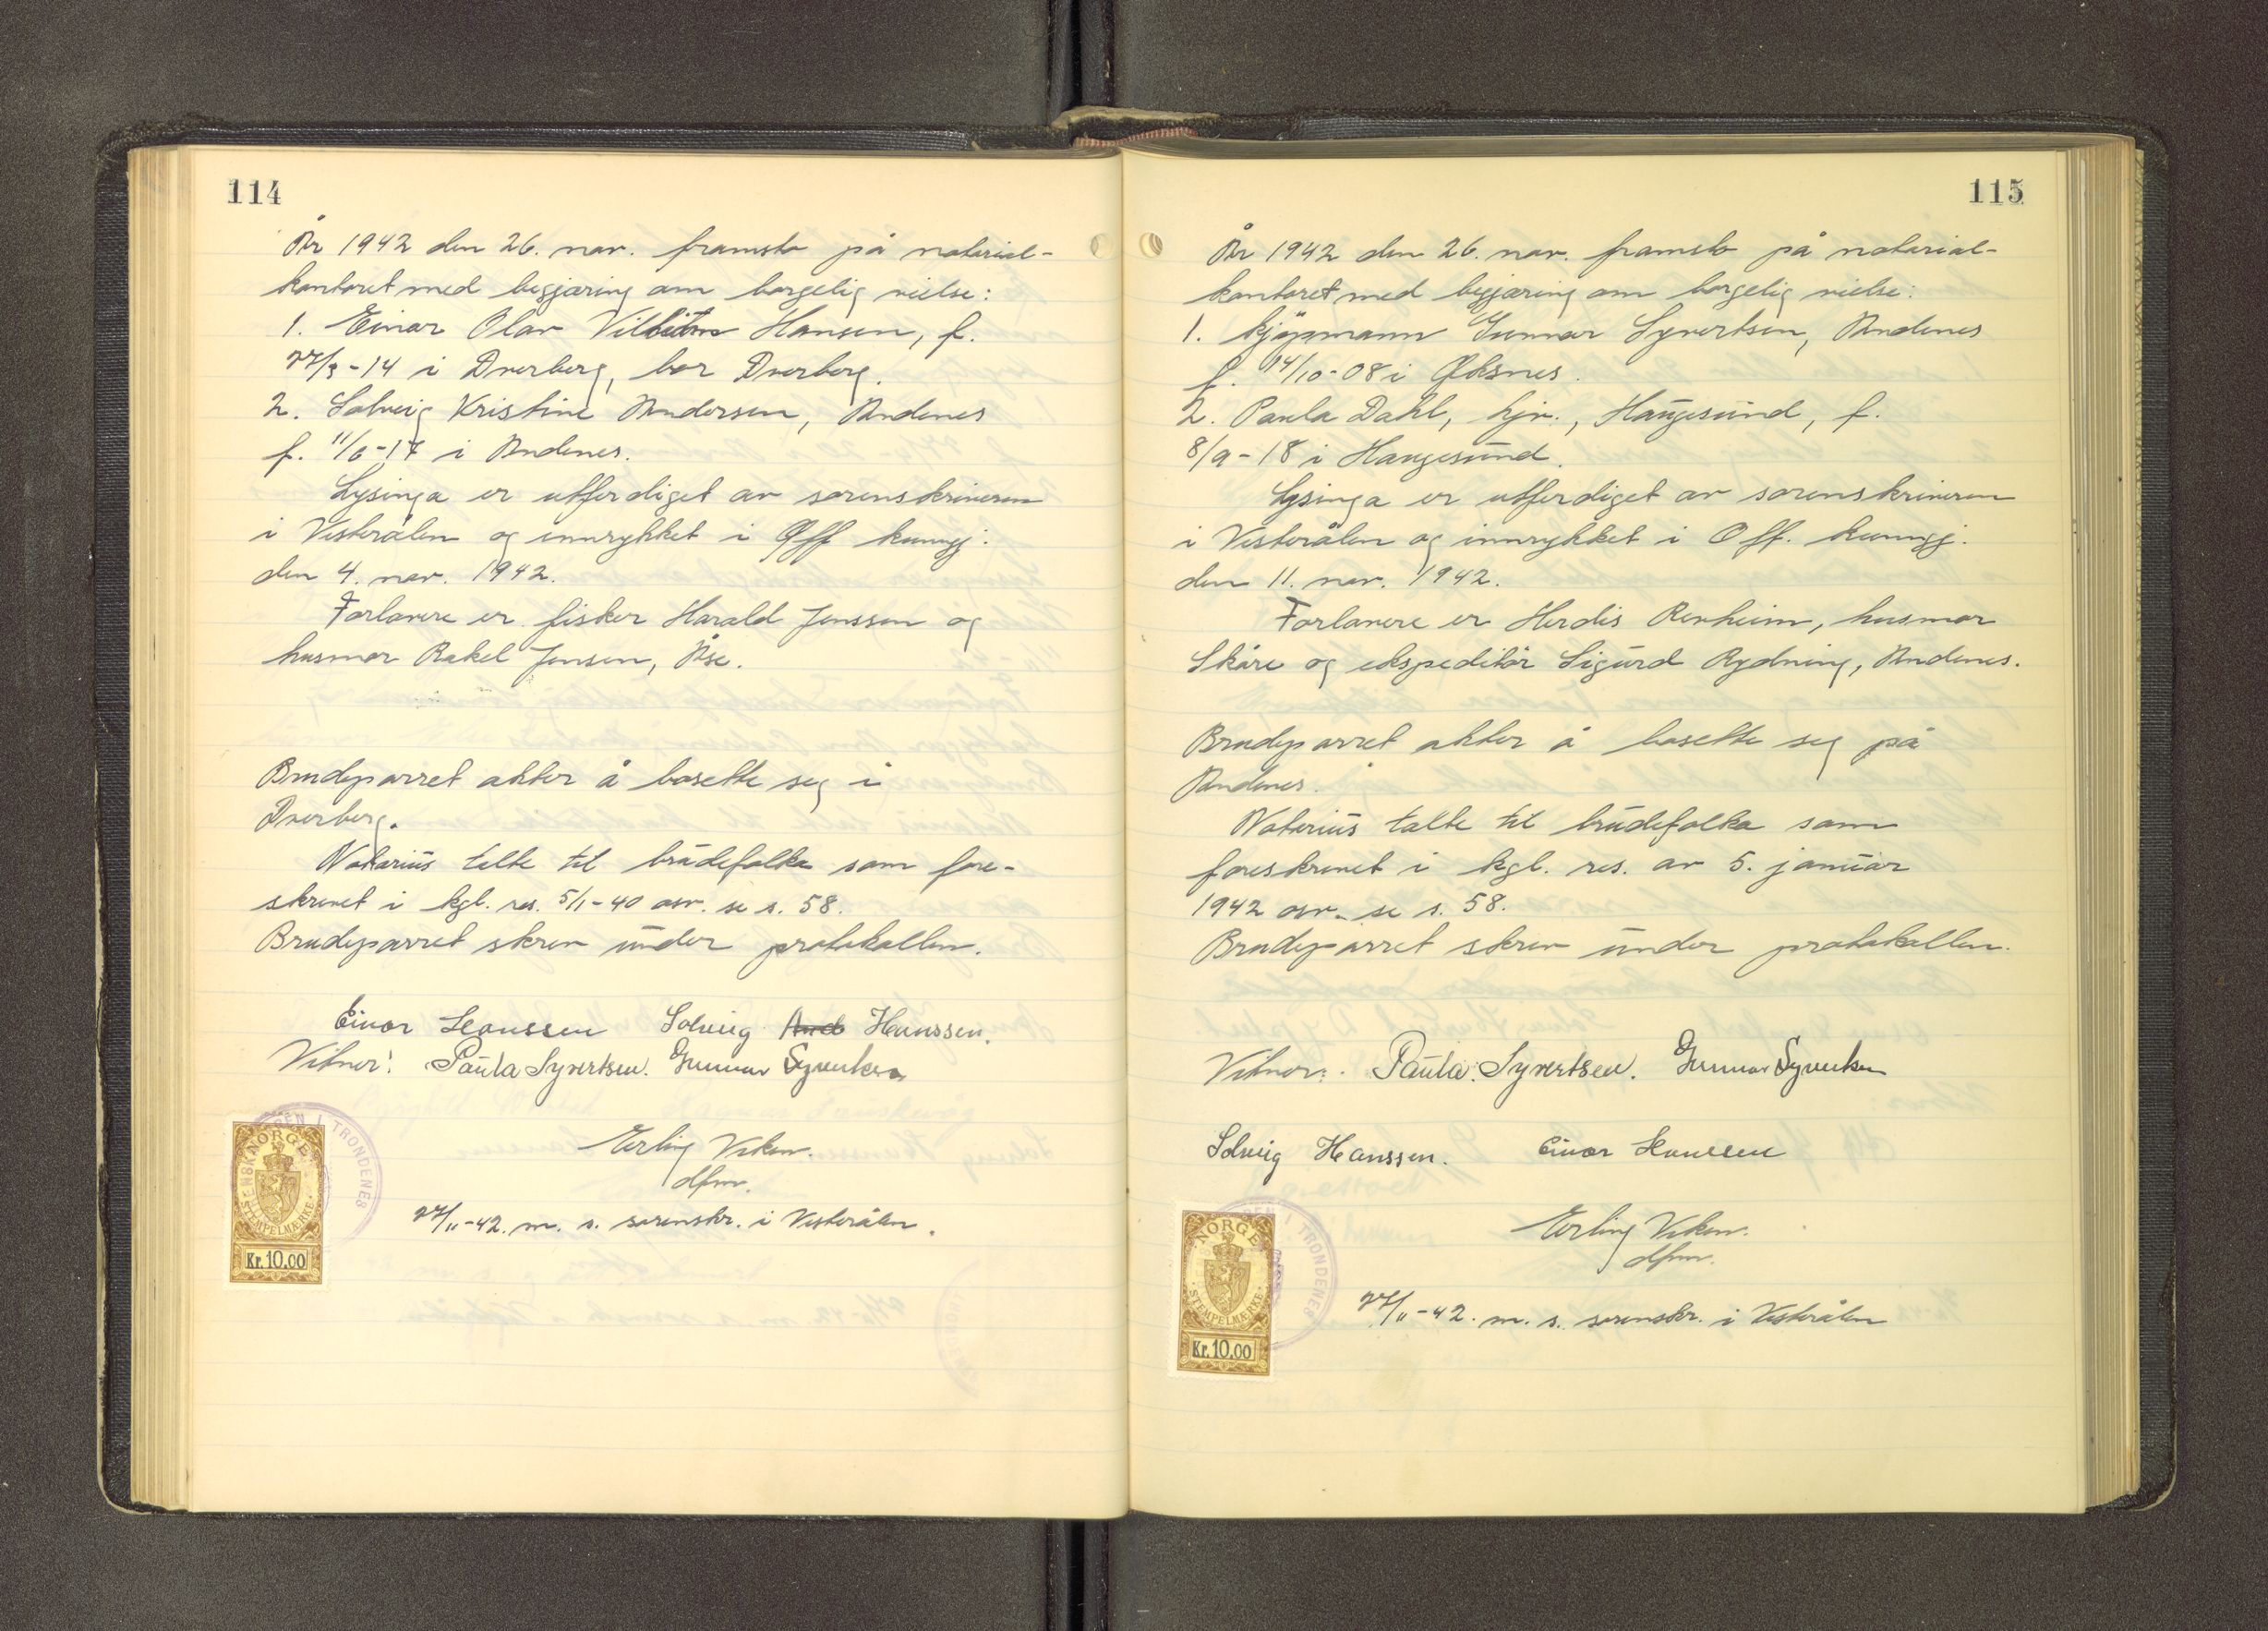 114
År 1942 den 26. nov. framsto på notarial-
kontoret med begjæring om borgelig vielse:
1. Einar Olav Hansen, f.
27/3-14 i Dverberg, bor Dverberg.
2. Solveig Kristine Andersen, Andenes
f. 11/6-17 i Andenes.
Lysinga er utferdiget av sorenskriveren
i Vesterålen og innrykket i Off kunngj.
den 4. nov. 1942.
Forlovere er fisker Harald Jenssen og
husmor Rakel Jensen, Åse.
Brudeparret akter å bosette seg i
Dverberg.
Notarius talte til brudefolka som fore-
skrevet i kgl. res. 5/1-40 osv. se s. 58.
Brudeparret skrev under protokollen.
Einar Hanssen Solveig Hanssen.
Vitner: Paula Syvertsen. Gunnar Syvertsen
NORGE
STEMPELMÆRKE
Kr. 10.00
TRONDENES
Erling Viken.
dfm.
27/11-42. m. s. sorenskr. i Vesterålen.
115
År 1942 den 26. nov. framsto på notarial-
kontoret med begjæring om borgelig vielse:
1. kjøpmann Gunnar Syvertsen, Andenes
f. 14/10-08 i Øksnes.
2. Paula Dahl, hjv., Haugesund, f.
8/9-18 i Haugesund.
Lysinga er utferdiget av sorenskriveren
i Vesterålen og innrykket i Off. kunngj.
den 11. nov. 1942.
Forlovere er Herdis Renheim, husmor
Skåre og ekspeditør Sigurd Rydning, Andenes.
Brudeparret akter å bosette seg på
Andenes.
Notarius talte til brudefolka som
foreskrevet i kgl. res. av 5. januar
1942 osv. se s. 58.
Brudeparret skrev under protokollen.
Vitner: Paula Syvertsen. Gunnar Syvertsen
Solveig Hanssen. Einar Hanssen
NORGE
STEMPELMÆRKE
Kr. 10.00
TRONDENES
Erling Viken.
dfm.
27/11-42. m. s. sorenskr. i Vesterålen